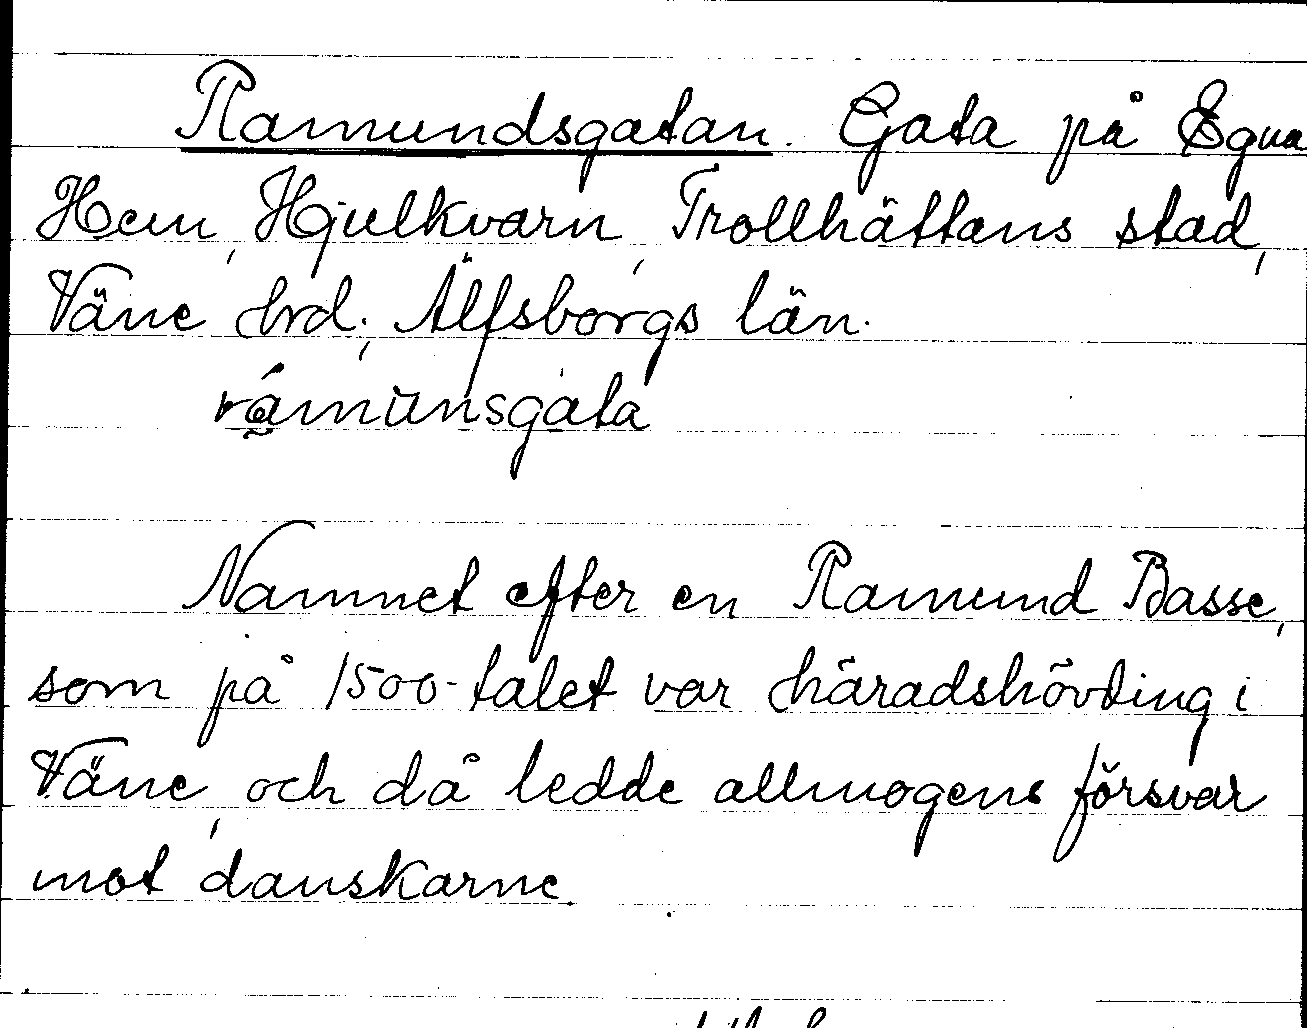 Ramundsgatan. Gata på Egna
Hem, Hjulkvarn, Trollhättans stad,
Väne hrd; Älfsborgs län.
råmunsgata
Namnet efter en Ramund Basse,
som på 1500-talet var häradshövding i
Väne, och då ledde allmogens försvar
mot danskarne.